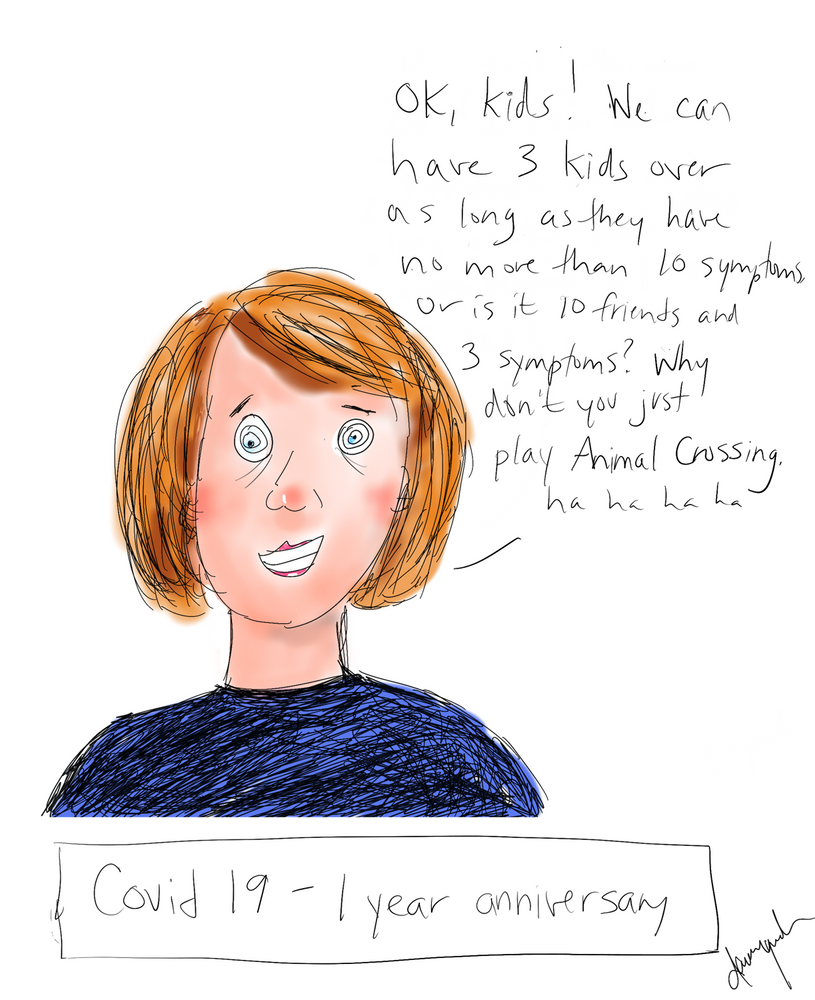 OK, kids! We can
have 3 kids over
as long as they have
no more than 10 symptoms,
Or is it 10 friends and
3 symptoms? Why
don't you just
play Animal Crossing.
ha ha ha ha
Covid 19 - 1 year anniversary